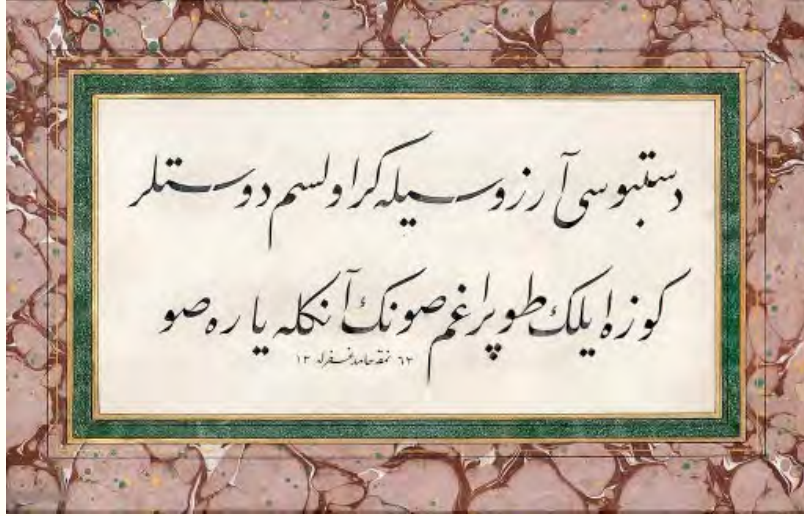 دستبوسی آرزوسیله کر اولسم دوستلر
کوزه ایلك طوپراغم صونك آنکله یاره صو
٦٣ نمقه حامد غفرله ١٣